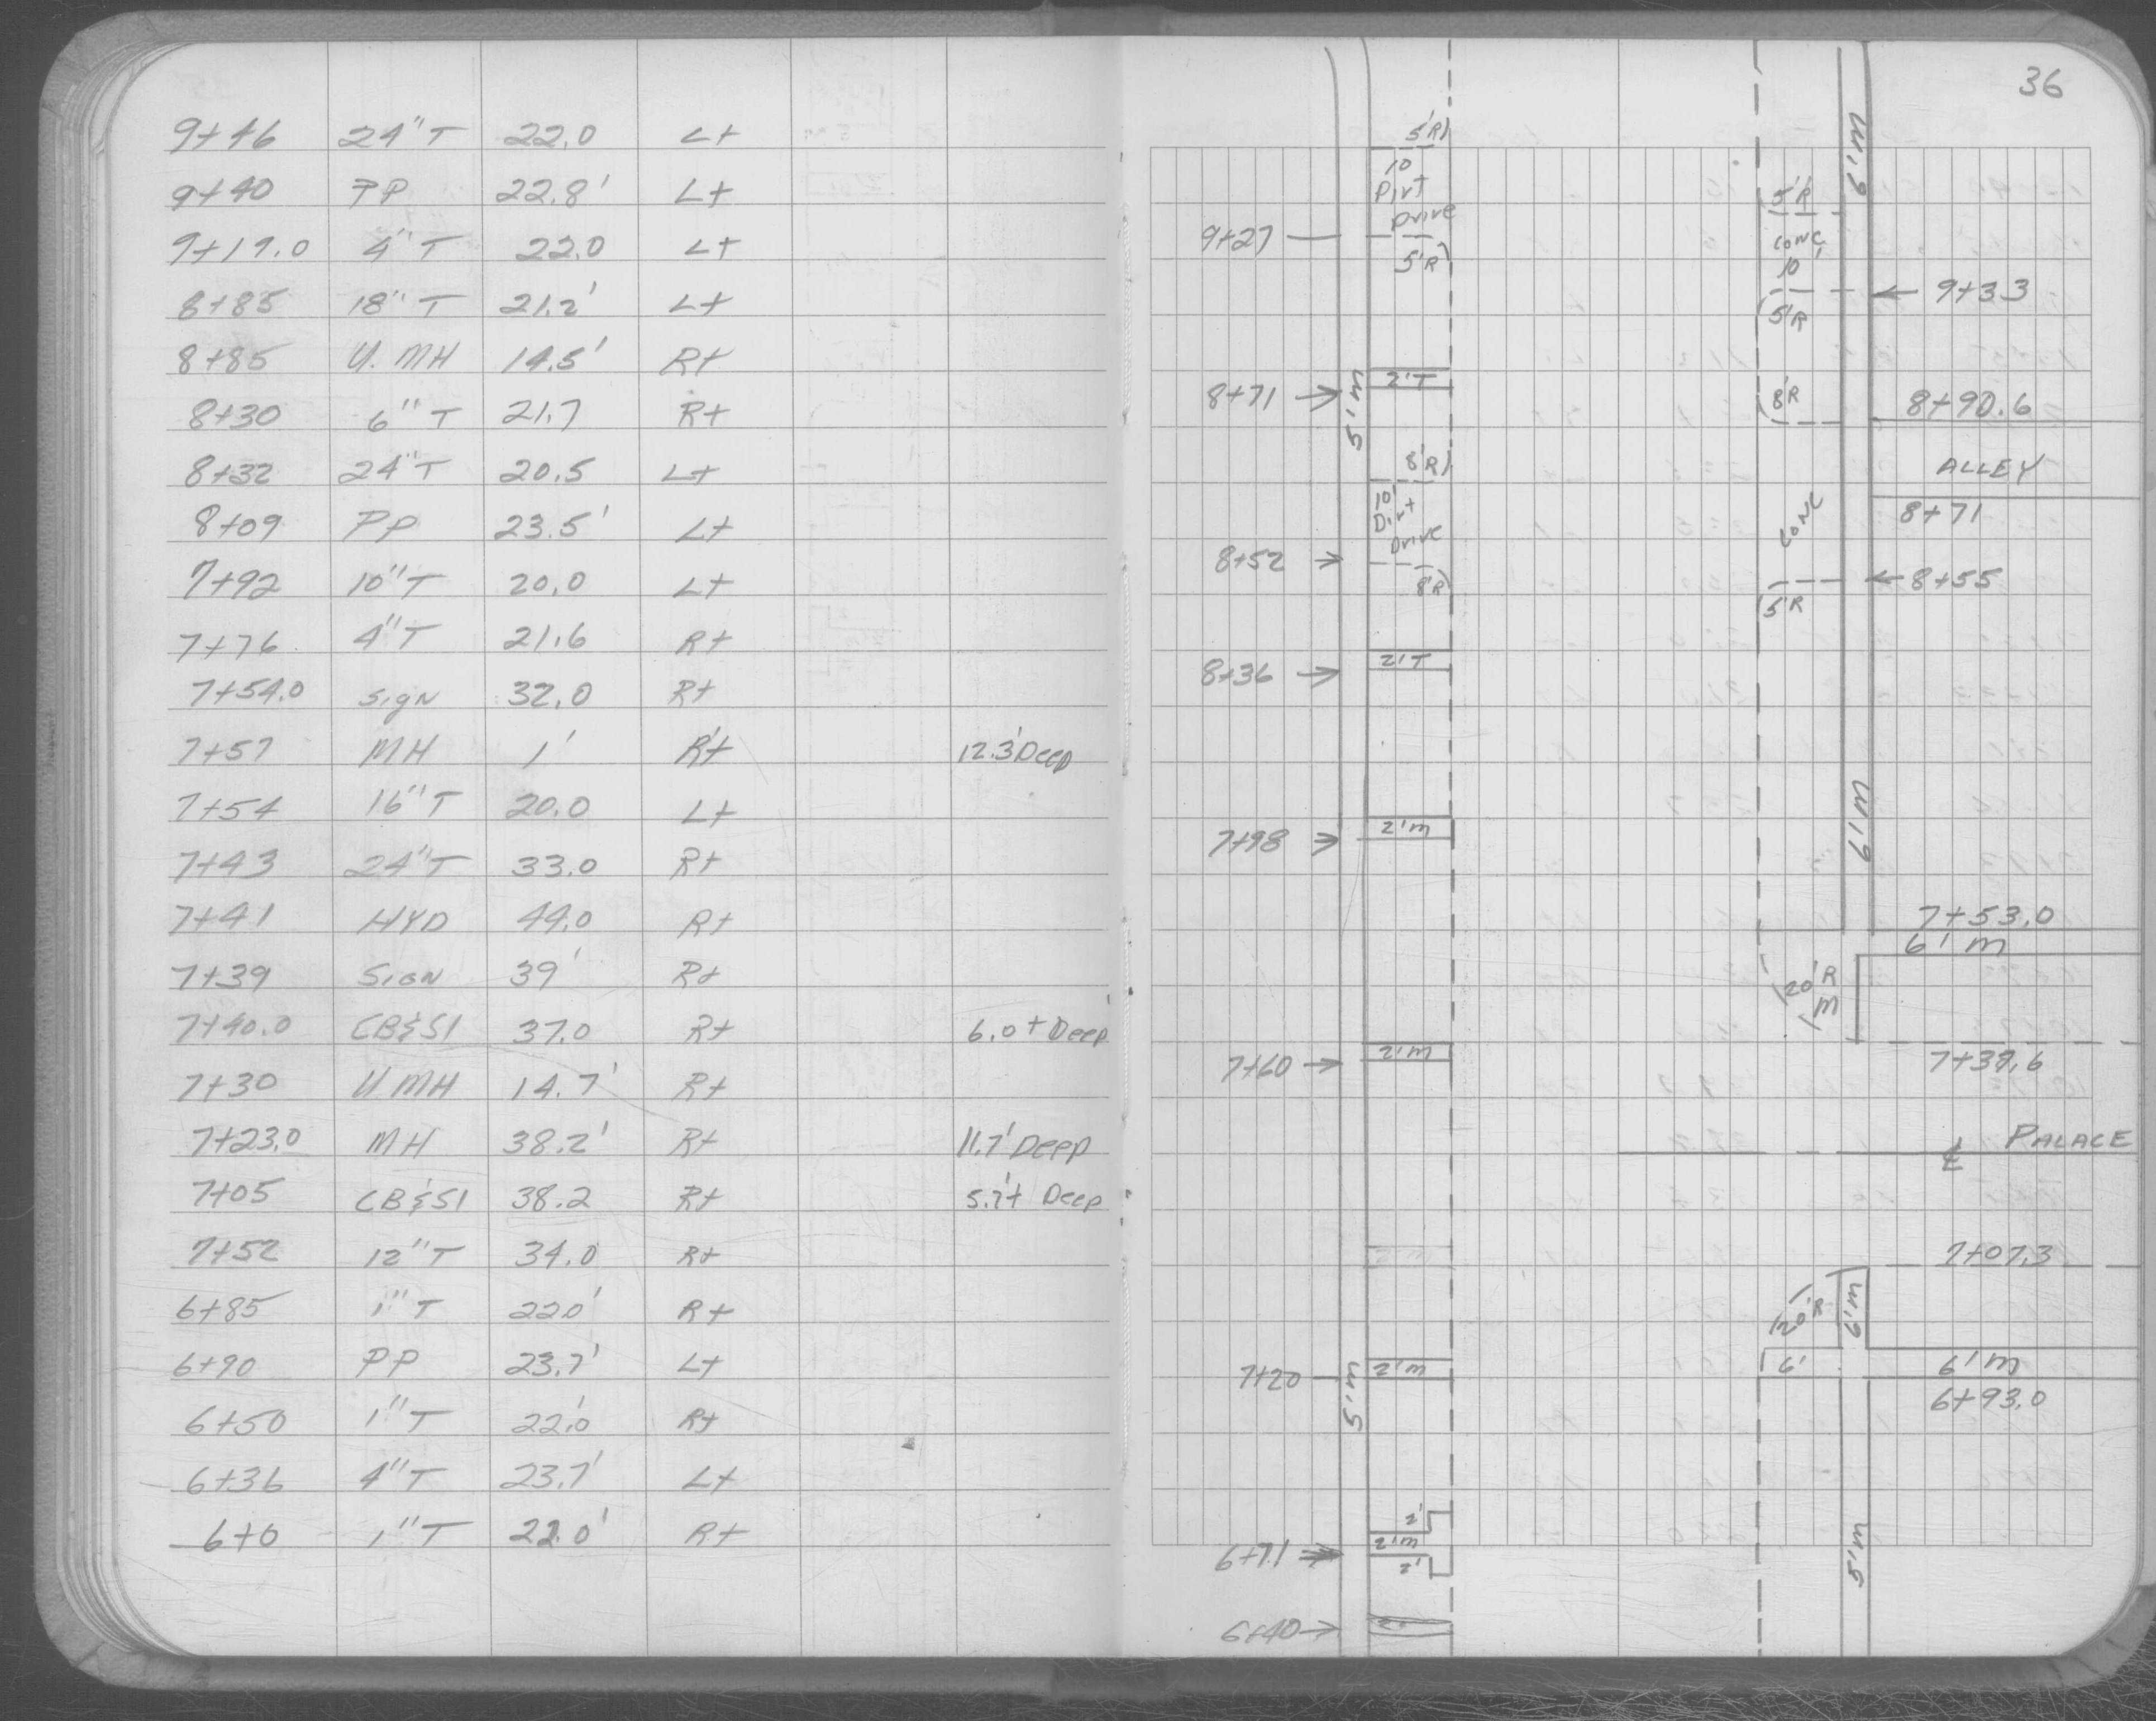 9+46 24"T 22.0 Lt
9+40 PP 22.8' Lt
9+19.0 4"T 22.0 Lt
8+85 18"T 21.2' Lt
8+85 U.MH 14.5' Rt
8+30 6"T 21.7 Rt
8+32 24"T 20.5 Lt
8+09 PP 23.5' Lt
7+92 10"T 20.0 Lt
7+76 4"T 21.6 Rt
7+54.0 Sign 32.0 Rt
7+57 MH 1' Rt 12.3'Deep
7+54 16"T 20.0 Lt
7+43 24"T 33.0 Rt
7+41 HYD 44.0 Rt
7+39 Sign 39' Rt
7+40.0 CB&SI 37.0 Rt 6.0'+ Deep
7+30 U.MH 14.7' Rt
7+23.0 MH 38.2' Rt 11.7' Deep
7+05 CB&SI 38.2 Rt 5.7'+ Deep
7+52 12"T 34.0 Rt
6+85 1"T 22.0' Rt
6+90 PP 23.7' Lt
6+50 1"T 22.0' Rt
6+36 4"T 23.7' Lt
6+0 1"T 22.0' Rt
36
5'R
10
Dirt
Drive
9+27
5'R
8+71
2'T
5'm
8'R
10'
Dirt
Drive
8+52
8'R
8+36
2'T
7+98
2'm
7+60
2'm
7+20
2'm
5'm
2'
6+71
2'm
2'
6+40
6'm
5'R
conc
10'
9+33
5'R
8'R
8+90.6
ALLEY
8+71
conc
8+55
5'R
6'm
7+53.0
6'm
20'R
M
7+39.6
℄ PALACE
7+07.3
20'R
6'm
6'
6'm
6+93.0
5'm